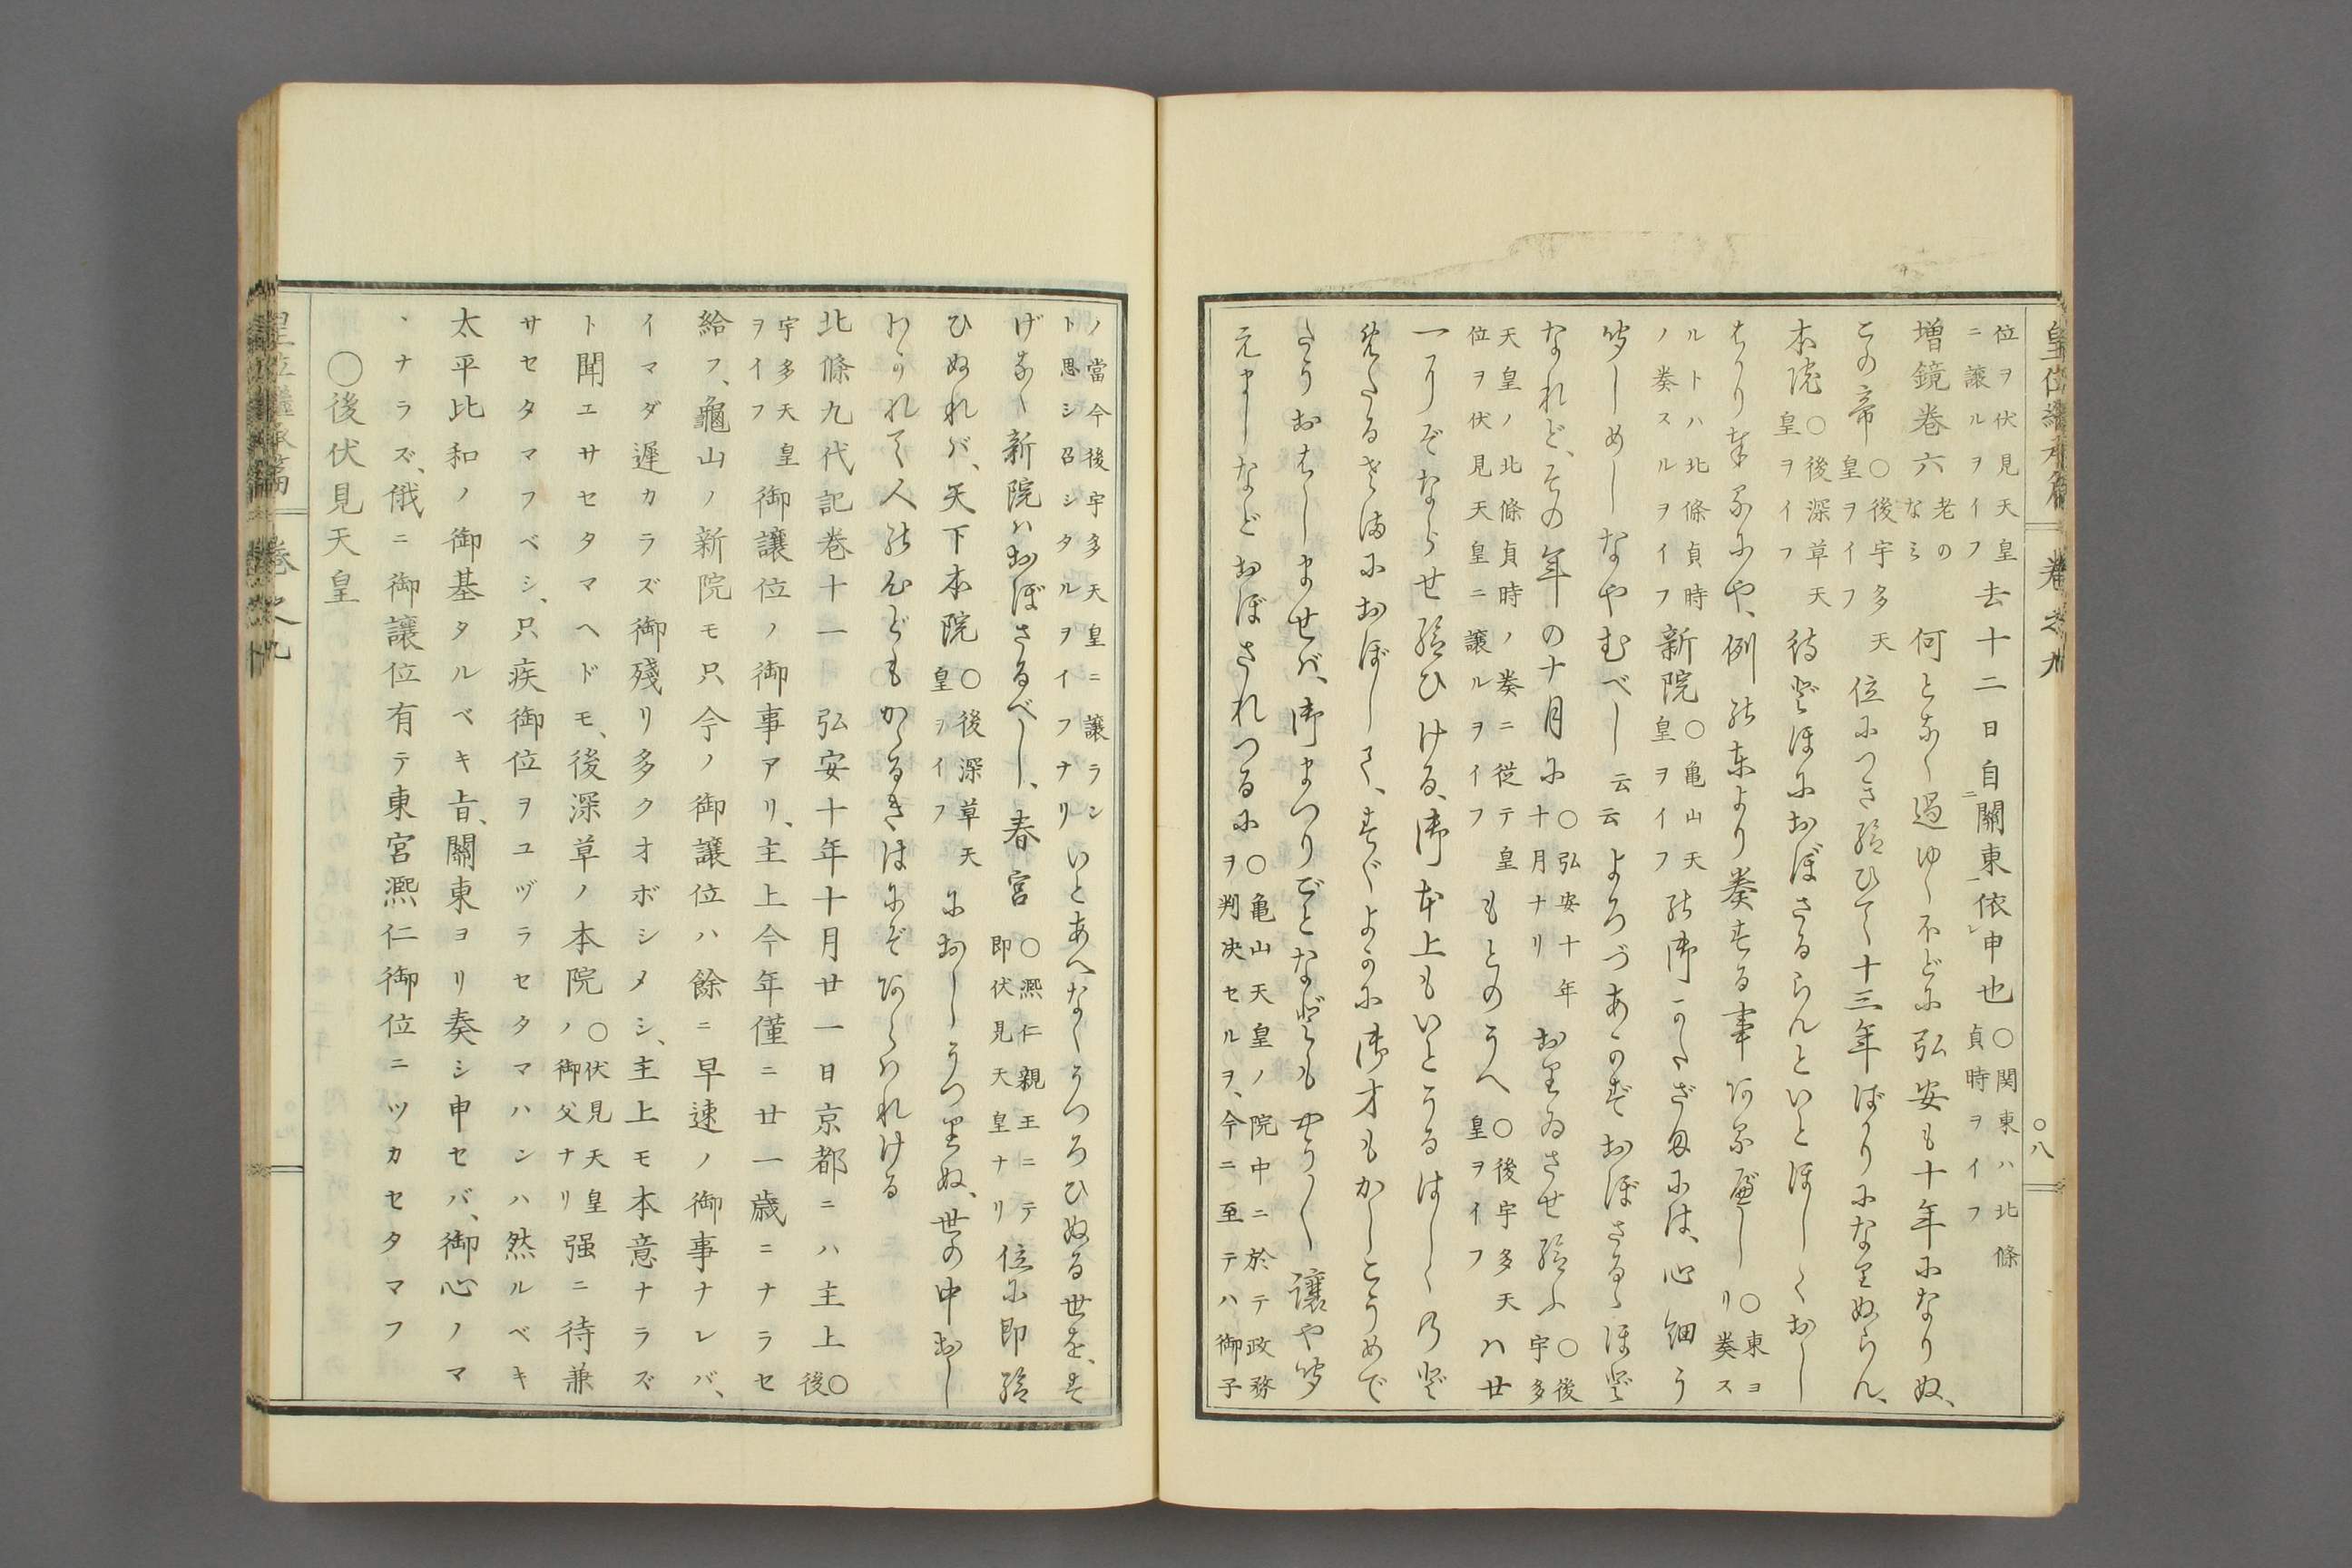 皇位繼承篇 卷之九 ○八
位ヲ伏見天皇
ニ讓ルヲイフ
去十二日自關東依申也
○関東ハ北條
貞時ヲイフ
増鏡卷六
老の
なミ
何となく過ゆくほどに弘安も十年になりぬ、
この帝
○後宇多天
皇ヲイフ
位につき給ひて十三年ばかりになりぬらん、
本院
○後深草天
皇ヲイフ
待どほにおぼさるらんといとほしくおし
はかり奉るにや、例の東より奏する事あるべし
○東ヨ
リ奏ス
ルトハ北條貞時
ノ奏スルヲイフ
新院
○亀山天
皇ヲイフ
の御かたざまには、心細う
聞しめしなやむべし
云云
よろづあかずおぼさるゝほど
なれど、その年の十月に
○弘安十年
十月ナリ
おりゐさせ給ふ
○後
宇多
天皇ノ北條貞時ノ奏ニ從テ皇
位ヲ伏見天皇ニ讓ルヲイフ
もとのうへ
○後宇多天
皇ヲイフ
ハ廿
一にぞならせ給ひける、御本上もいとうるはしくのど
めたるさまにおぼして、すべてよに御才もかしこうめで
たうおはしませば、御まつりごとなども やう〳〵讓や聞
えましなどおぼされつるに
○亀山天皇ノ院中ニ於テ政務
ヲ判决セルヲ、今ニ至テハ御子
ノ當今後宇多天皇ニ讓ラン
ト思シ召シタルヲイフナリ
いとあへなくうつろひぬる世を、す
げなく新院ハおぼさるべし、春宮
○熈仁親王ニテ
即伏見天皇ナリ
位に即給
ひぬれバ、天下本院
○後深草天
皇ヲイフ
におしうつりぬ、世の中おし
わかれて人のこころどもかゝるきはにぞあらはれける
北條九代記卷十一 弘安十年十月廿一日京都ニハ主上
○
後
宇多天皇
ヲイフ
御讓位ノ御事アリ、主上今年僅ニ廿一歳ニナラセ
給フ、龜山ノ新院モ只今ノ御讓位ハ餘ニ早速ノ御事ナレバ、
イマダ遲カラズ御殘リ多クオボシメシ、主上モ本意ナラズ
ト聞エサセタマヘドモ、後深草ノ本院
○伏見天皇
ノ御父ナリ
强ニ待兼
サセタマフベシ、只疾御位ヲユヅラセタマハンハ然ルベキ
太平比和ノ御基タルベキ旨、關東ヨリ奏シ申セバ、御心ノマ
、ナラズ、俄ニ御讓位有テ東宮熈仁御位ニツカセタマフ
○後伏見天皇
皇位繼承篇 卷之九